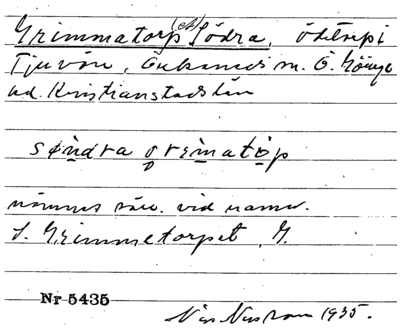 Grimmatorp (et) Södra, ödetorp i
Tjuvön, m. Ö. Göinge
hd. Kristianstads län
söndra grimatöp
nämnes vid namn.
S. Grimmetorpet, G.
Nr 5435
1935.